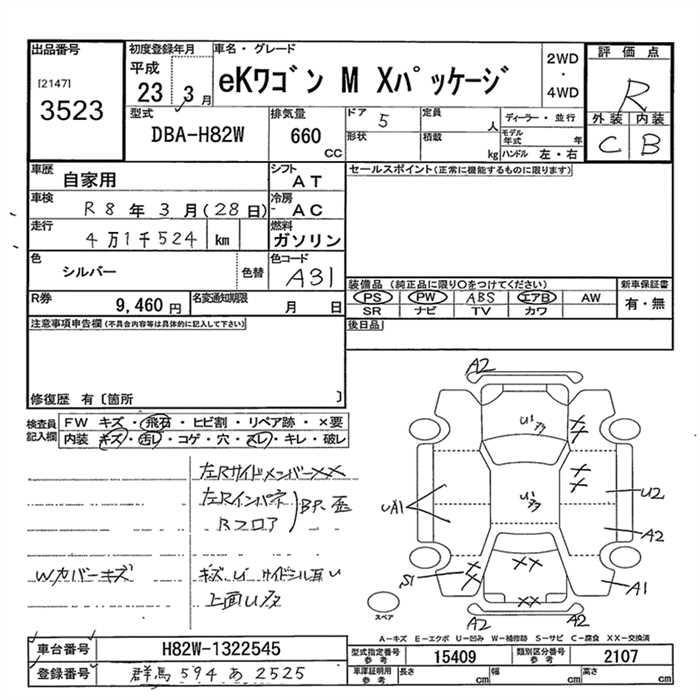 出品番号
[2147]
3523
初度登録年月
平成
23 3 月
車名・グレード
eKワゴン M Xパッケージ
2WD
・
4WD
評価点
R
外装 内装
C B
型式
DBA-H82W
排気量
660
CC
ドア 5
定員 人
形状
積載 kg
ディーラー・並行
モデル年式 年
ハンドル 左・右
車歴 自家用
シフト AT
車検 R8年3月(28日)
冷房 AC
走行 4万1千524 km
燃料 ガソリン
色 シルバー
色替
色コード A31
R券 9,460 円
名変通知期限 月 日
セールスポイント(正常に機能するものに限ります)
装備品 (純正品に限り○をつけてください)
PS PW ABS エアB AW
SR ナビ TV カワ
新車保証書
有・無
後日品
注意事項申告欄(不具合内容等は具体的に記入して下さい)
修復歴 有〔箇所 〕
検査員記入欄
FW キズ・飛石・ヒビ割・リペア跡・×要
内装 キズ・汚レ・コゲ・穴・スレ・キレ・破レ
左Rサイドメンバー××
左Rインパネ
Rフロア
BP歪
Wカバーキズ
キズU サイドシル耳U
上面U多
A2
U多
U多
××
××
U2
A2
A1
UA1
S1
××
××
××
A2
A2
スペア
A-キズ E-エクボ U-凹み W-補修跡 S-サビ C-腐食 XX-交換済
車台番号 H82W-1322545
登録番号 群馬 594 あ 2525
型式指定番号
参考
15409
類別区分番号
参考
2107
車庫証明用
参考
長さ cm 幅 cm 高さ cm